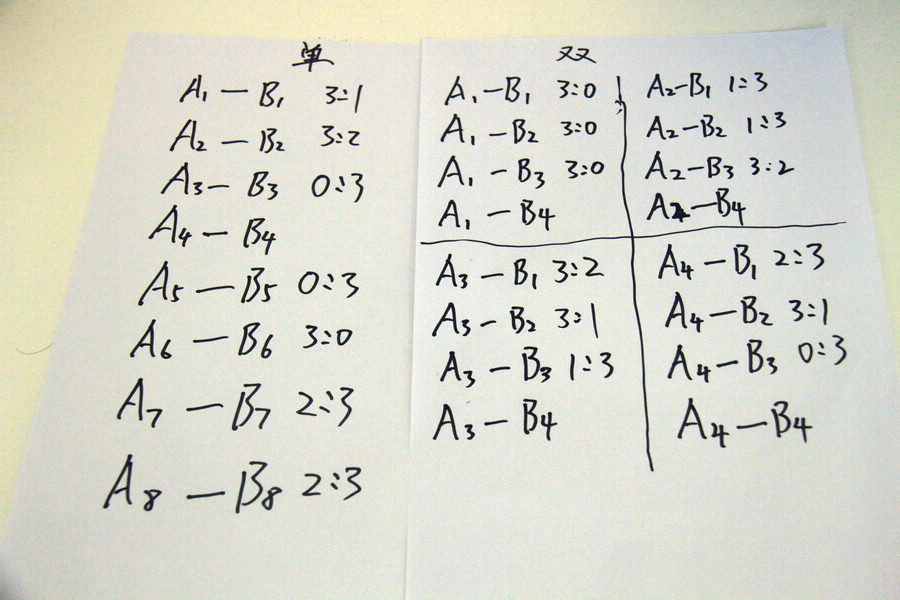 单
A1 — B1 3:1
A2 — B2 3:2
A3 — B3 0:3
A4 — B4
A5 — B5 0:3
A6 — B6 3:0
A7 — B7 2:3
A8 — B8 2:3
双
A1 — B1 3:0
A1 — B2 3:0
A1 — B3 3:0
A1 — B4
A2 — B1 1:3
A2 — B2 1:3
A2 — B3 3:2
A2 — B4
A3 — B1 3:2
A3 — B2 3:1
A3 — B3 1:3
A3 — B4
A4 — B1 2:3
A4 — B2 3:1
A4 — B3 0:3
A4 — B4